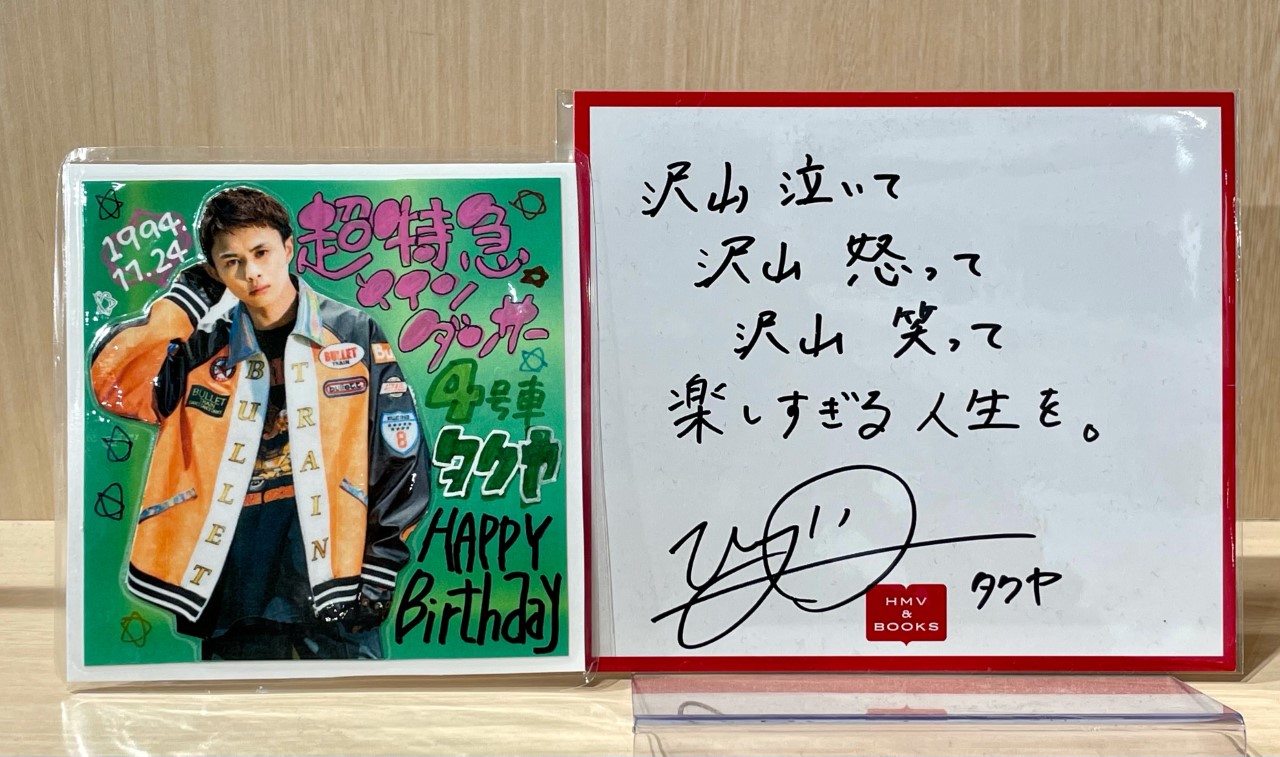 1994.
11.24
超特急
メイン
ダンサー
4号車
タクヤ
HAPPY
Birthday
BULLET
TRAIN
BULLET
TRAIN
BULLET
8
沢山 泣いて
沢山 怒って
沢山 笑って
楽しすぎる人生を。
タクヤ
HMV
&
BOOKS